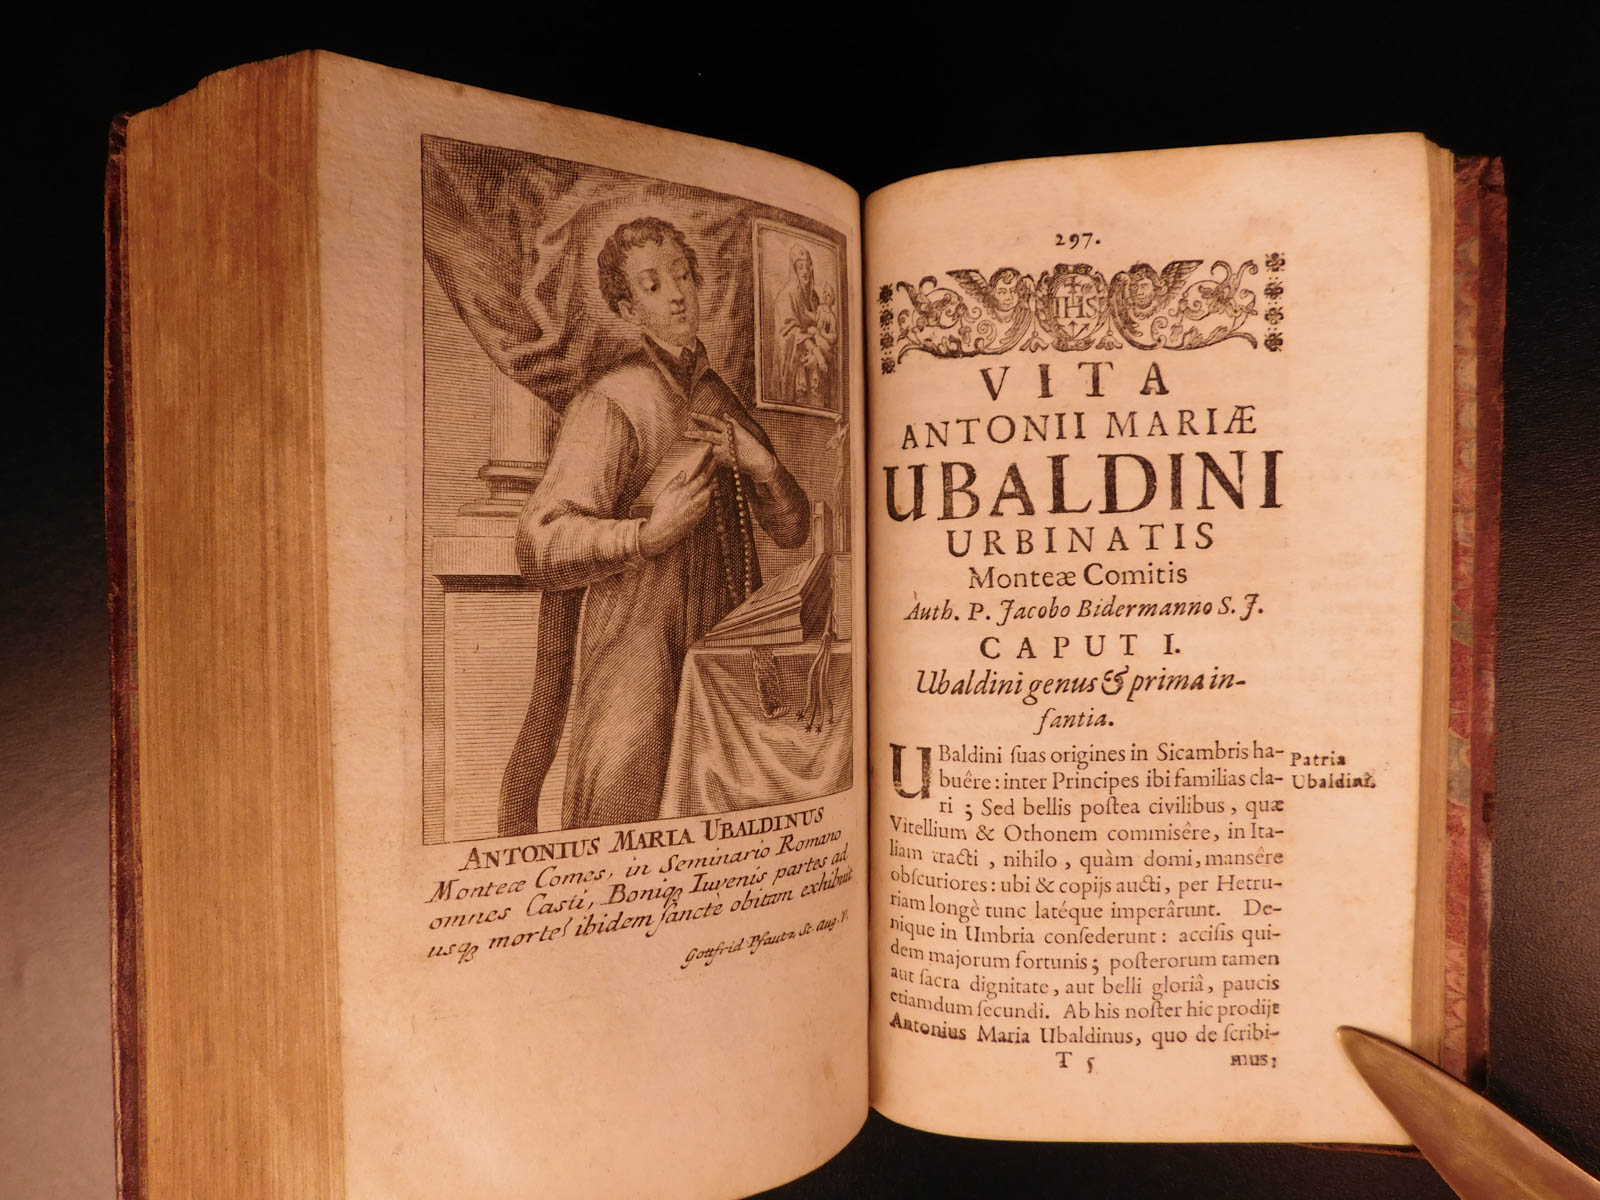 ANTONIUS MARIA UBALDINUS
Monteæ Comes, in Seminario Romano
omnes Casii, Boniq₃ Iuvenis partes ad
usq₃ mortē ibidem sanctè obitam exhibuit
Gottfrid Pfautz, Sc. Aug. V.
297.
IHS
VITA
ANTONII MARIÆ
UBALDINI
URBINATIS
Monteæ Comitis
Auth. P. Jacobo Bidermanno S. J.
CAPUT I.
Ubaldini genus & prima in-
fantia.
UBaldini suas origines in Sicambris ha-
buêre: inter Principes ibi familias cla-
ri; Sed bellis postea civilibus, quæ
Vitellium & Othonem commisêre, in Ita-
liam tracti, nihilo, quàm domi, mansêre
obscuriores: ubi & copijs aucti, per Hetru-
riam longè tunc latéque imperârunt. De-
nique in Umbria consederunt: accisis qui-
dem majorum fortunis; posterorum tamen
aut sacra dignitate, aut belli gloriâ, paucis
etiamdum secundi. Ab his noster hic prodijt
Antonius Maria Ubaldinus, quo de scribi-
T 5 mus;
Patria
Ubaldini.